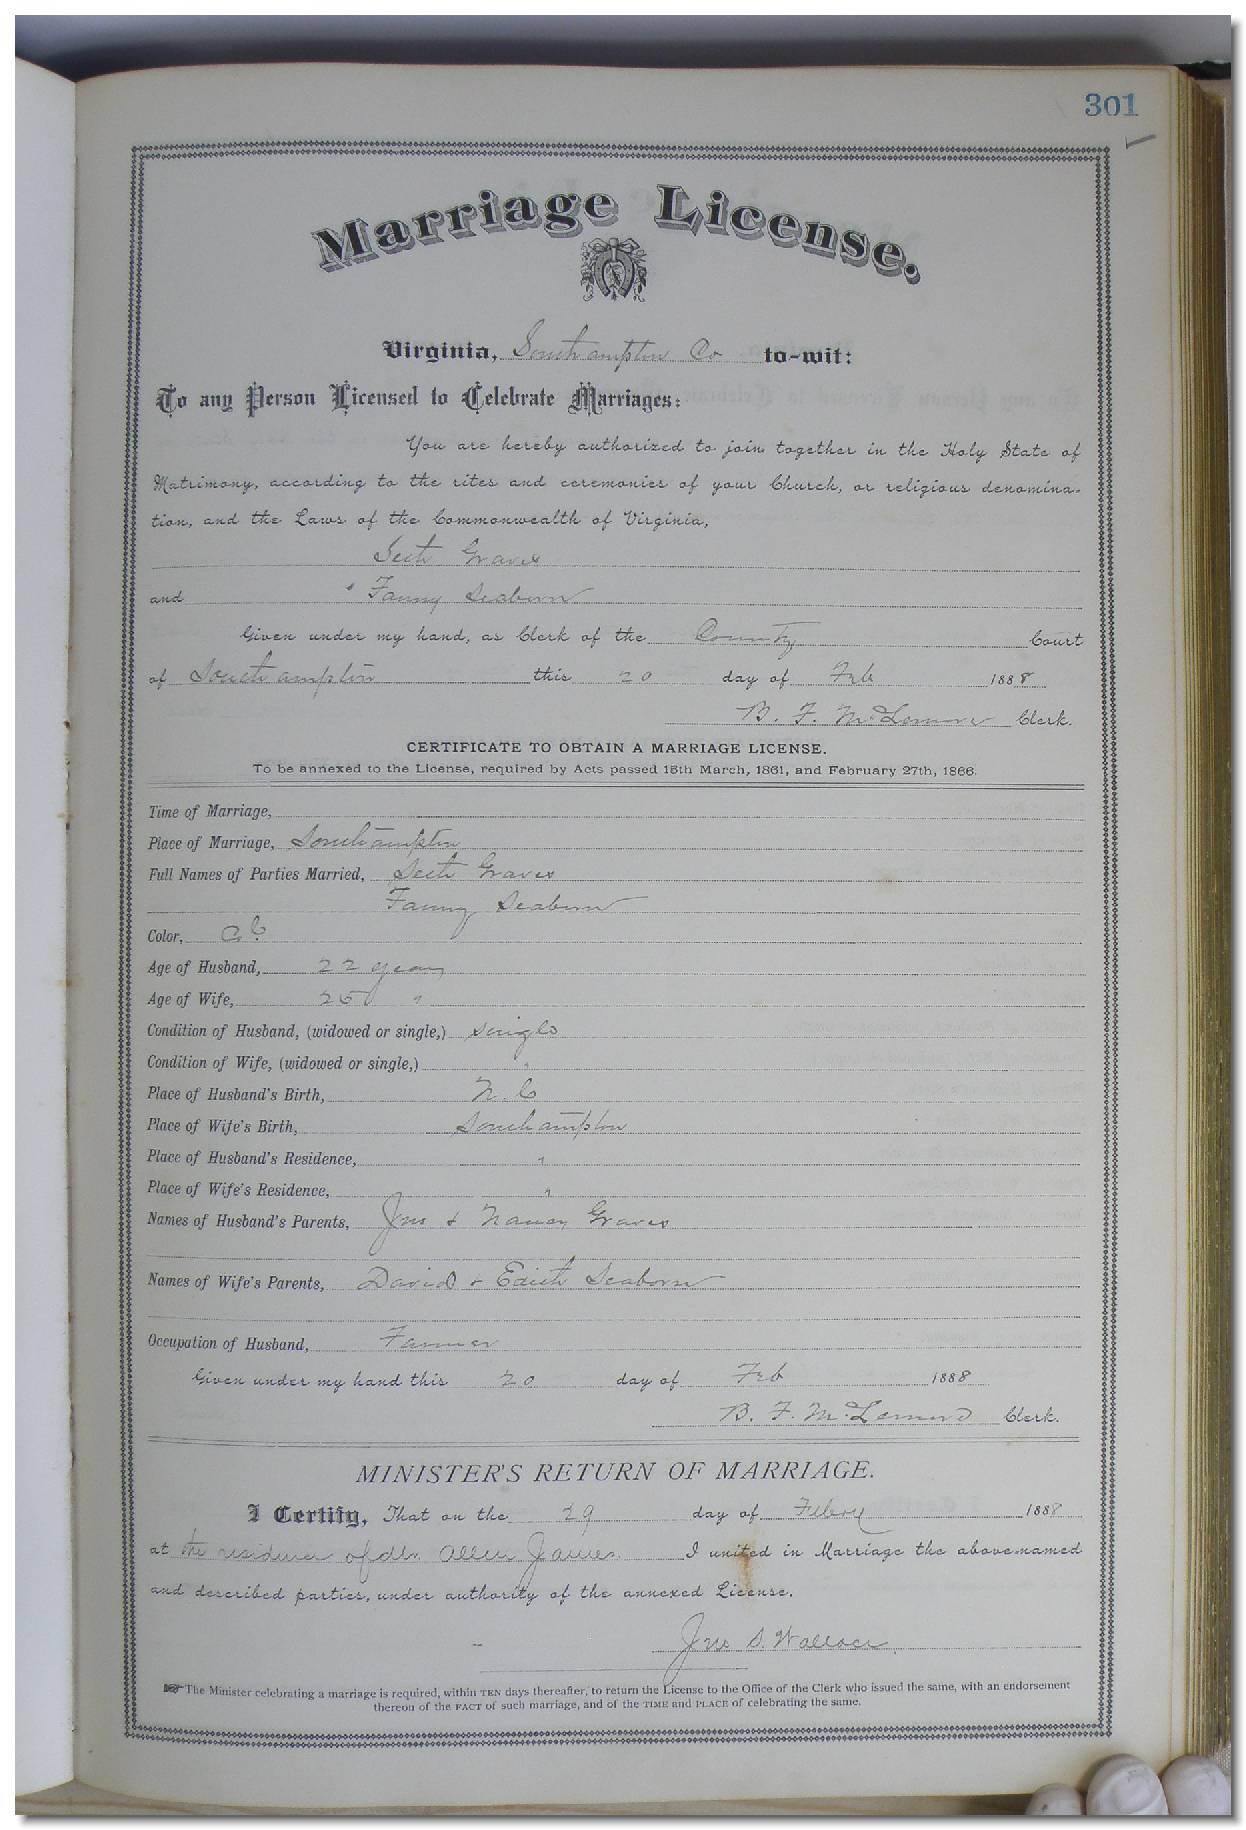 301
Marriage License.
Virginia, Southampton Co to-wit:
To any Person Licensed to Celebrate Marriages:
You are hereby authorized to join together in the Holy State of
Matrimony, according to the rites and ceremonies of your Church, or religious denomina-
tion, and the Laws of the Commonwealth of Virginia,
Seth Graves
and Fanny Seaborn
Given under my hand, as Clerk of the County Court
of Southampton this 20 day of Feb 1888
B. F. McLemore Clerk.
CERTIFICATE TO OBTAIN A MARRIAGE LICENSE.
To be annexed to the License, required by Acts passed 15th March, 1861, and February 27th, 1866.
Time of Marriage,
Place of Marriage, Southampton
Full Names of Parties Married, Seth Graves
Fanny Seaborn
Color, Col
Age of Husband, 22 years
Age of Wife, 25 "
Condition of Husband, (widowed or single,) single
Condition of Wife, (widowed or single,) "
Place of Husband's Birth, N. C
Place of Wife's Birth, Southampton
Place of Husband's Residence, "
Place of Wife's Residence, "
Names of Husband's Parents, Jno & Nancy Graves
Names of Wife's Parents, David & Edith Seaborn
Occupation of Husband, Farmer
Given under my hand this 20 day of Feb 1888
B. F. McLemore Clerk.
MINISTER'S RETURN OF MARRIAGE.
I Certify, That on the 29 day of Febry 1888
at the residence of Mr. Allen James I united in Marriage the above-named
and described parties, under authority of the annexed License.
Jno S. Wallace
The Minister celebrating a marriage is required, within TEN days thereafter, to return the License to the Office of the Clerk who issued the same, with an endorsement
thereon of the FACT of such marriage, and of the TIME and PLACE of celebrating the same.